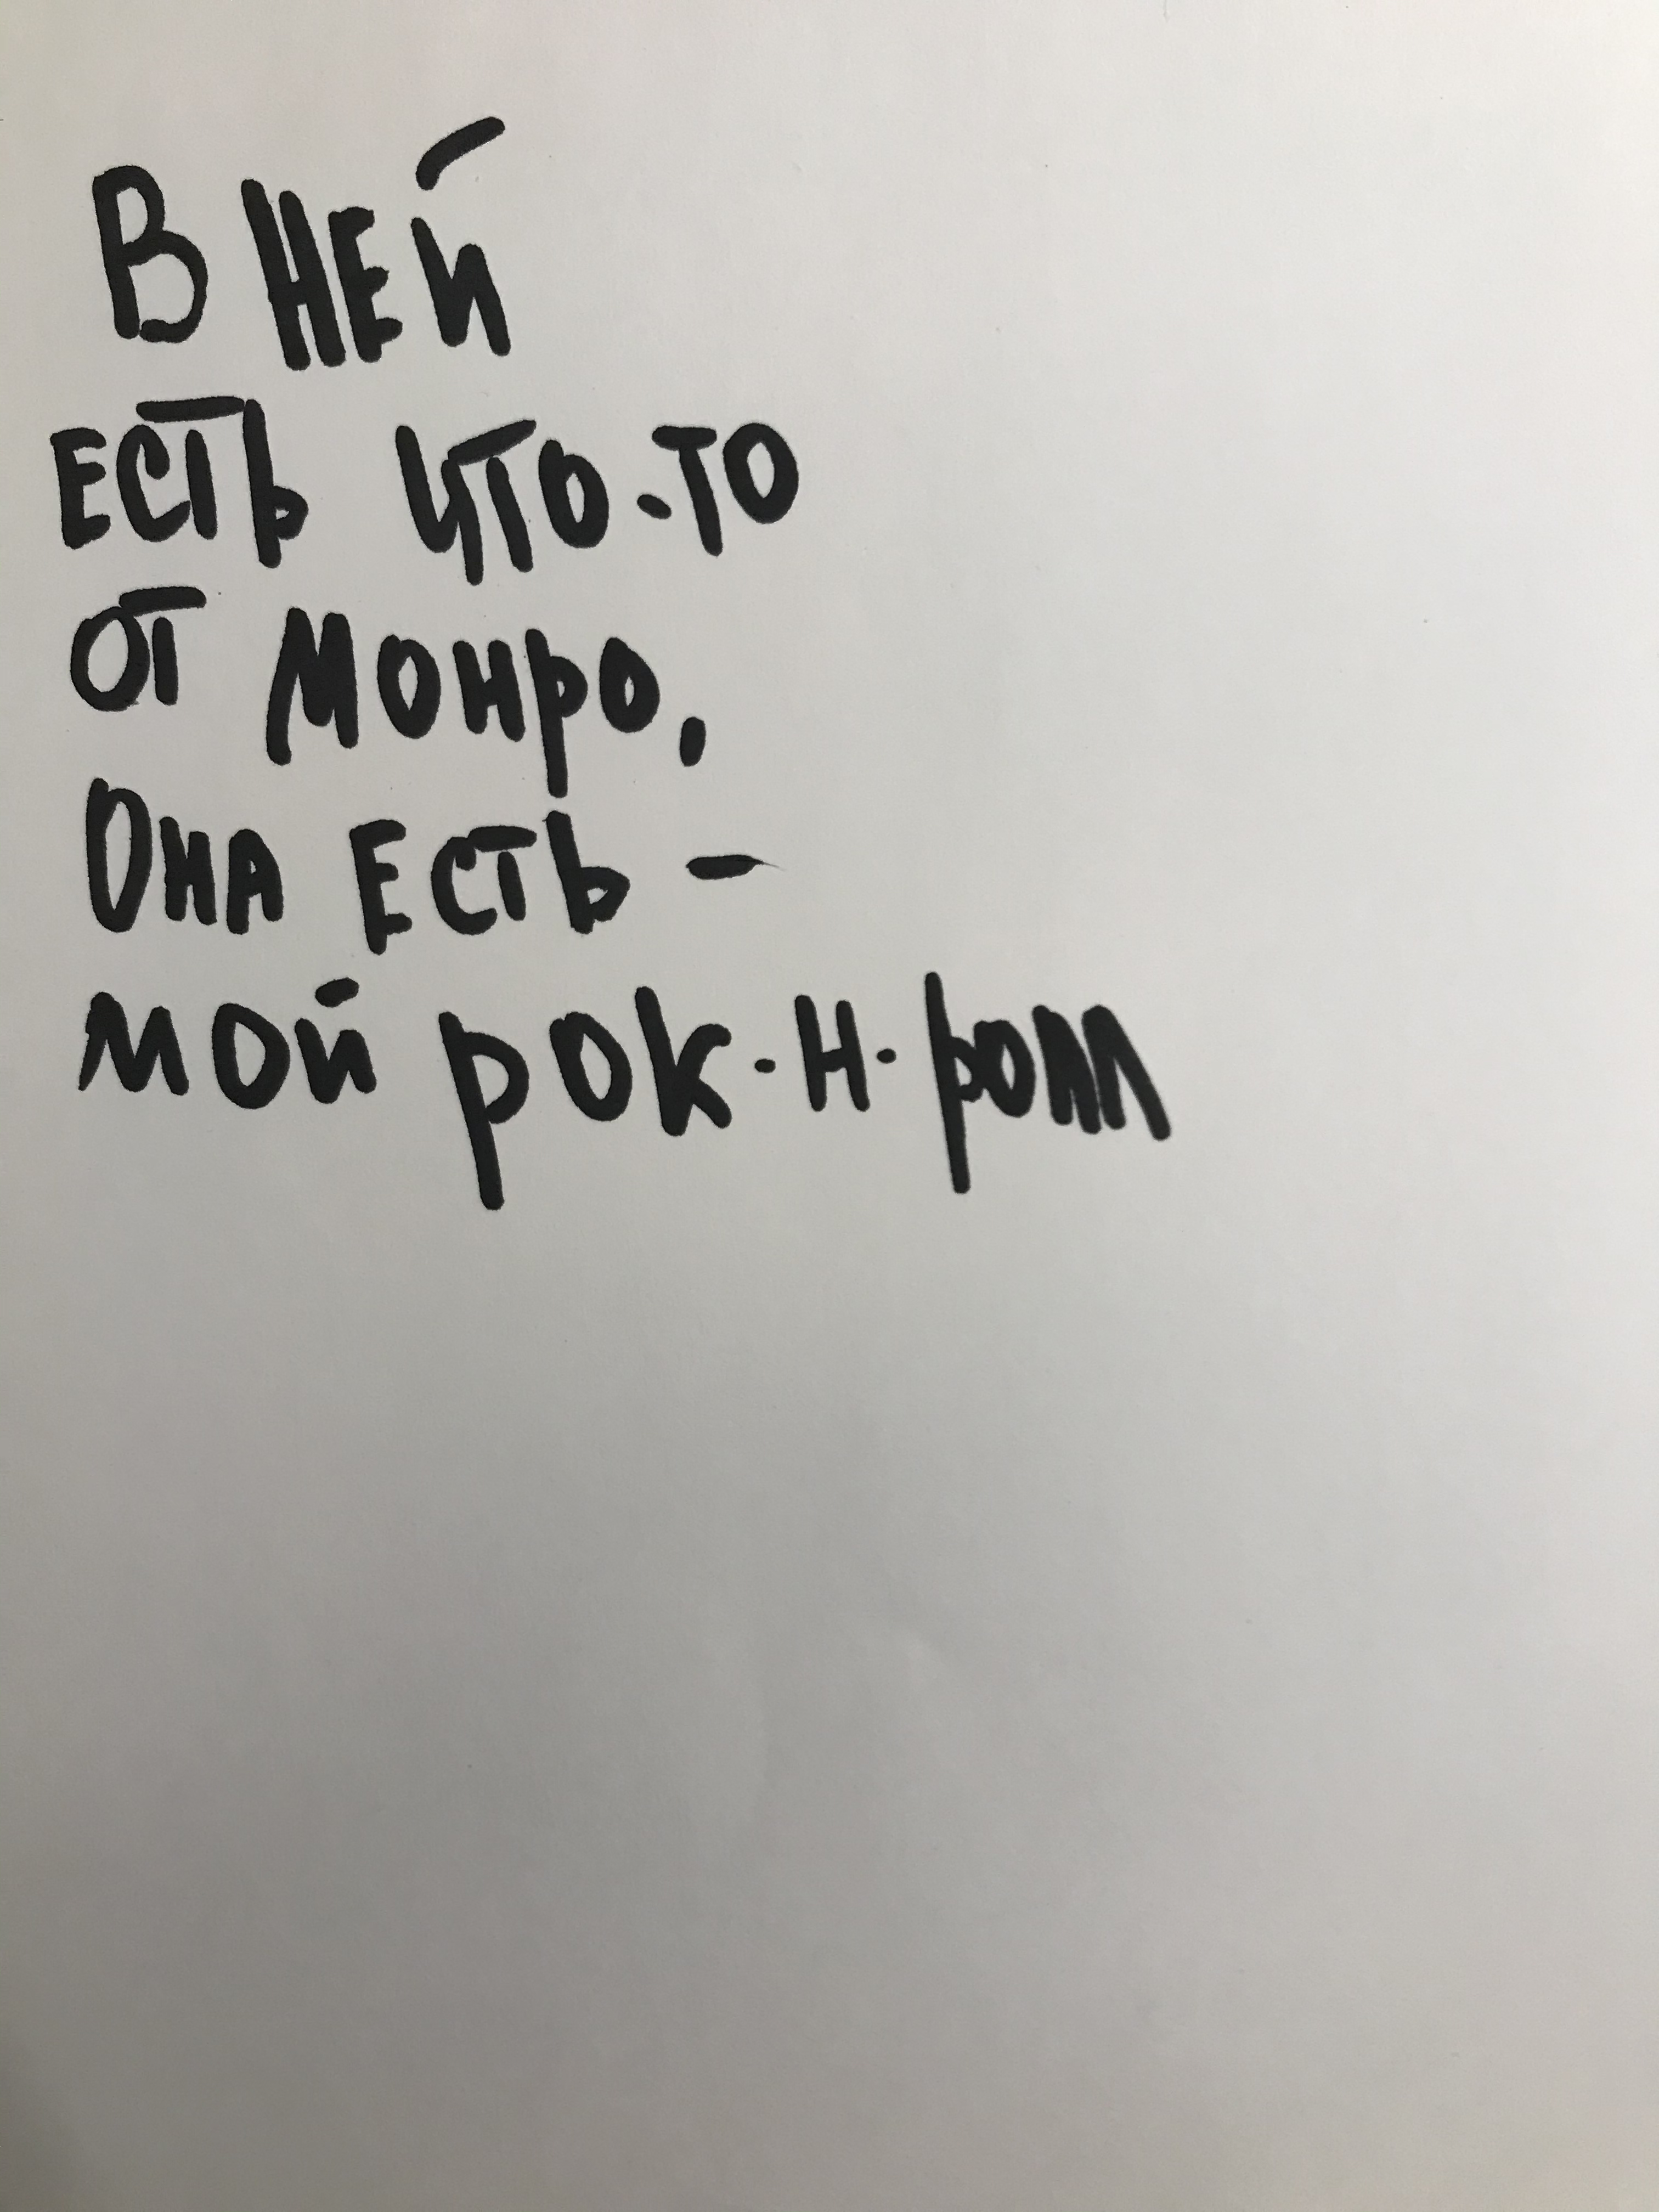 В НЕЙ
ЕСТЬ ЧТО-ТО
ОТ МОНРО,
ОНА ЕСТЬ -
МОЙ РОК-Н-РОЛЛ